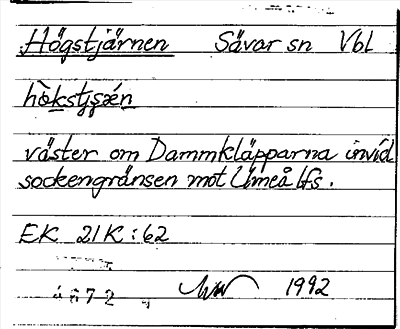 Högstjärnen Sävar sn Vbl
väster om Dammkläpparna invid
sockengränsen mot Umeå lfs.
EK 21K:62
1992